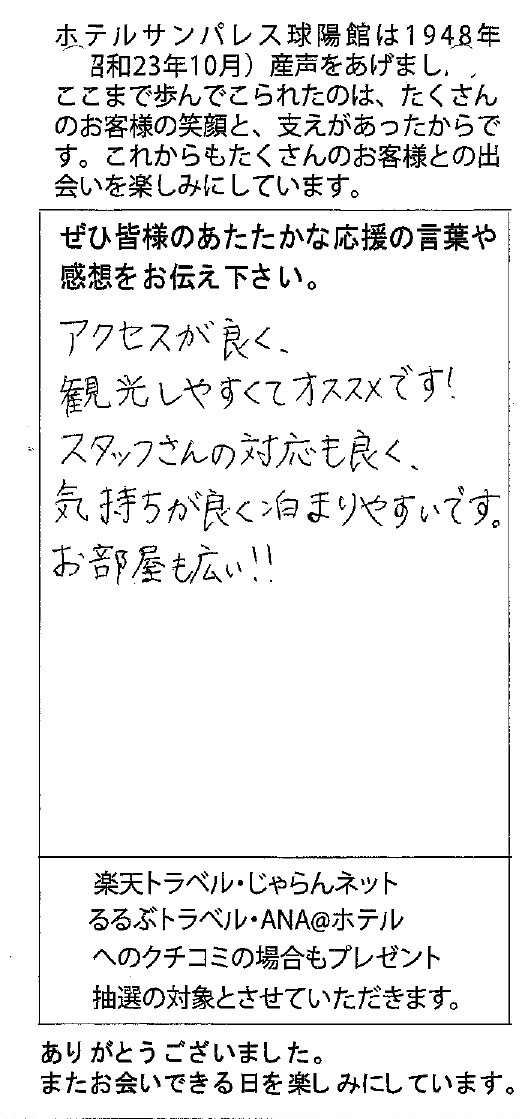 ホテルサンパレス球陽館は1948年
昭和23年10月）産声をあげまし
ここまで歩んでこられたのは、たくさん
のお客様の笑顔と、支えがあったからで
す。これからもたくさんのお客様との出
会いを楽しみにしています。
ぜひ皆様のあたたかな応援の言葉や
感想をお伝え下さい。
アクセスが良く、
観光しやすくてオススメです!
スタッフさんの対応も良く、
気持ちが良く泊まりやすいです。
お部屋も広い!!
楽天トラベル・じゃらんネット
るるぶトラベル・ANA@ホテル
へのクチコミの場合もプレゼント
抽選の対象とさせていただきます。
ありがとうございました。
またお会いできる日を楽しみにしています。